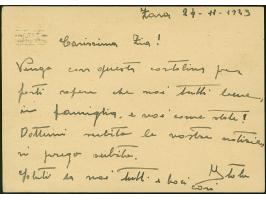 Zara 24-11-1943
Carissima Zia!
Vengo con questa cartolina per
farti sapere che noi tutti bene,
in famiglia, e voi come state?
Dottemi subito le vostre notizie
vi prego subito.
Saluti da noi tutti e baci cari